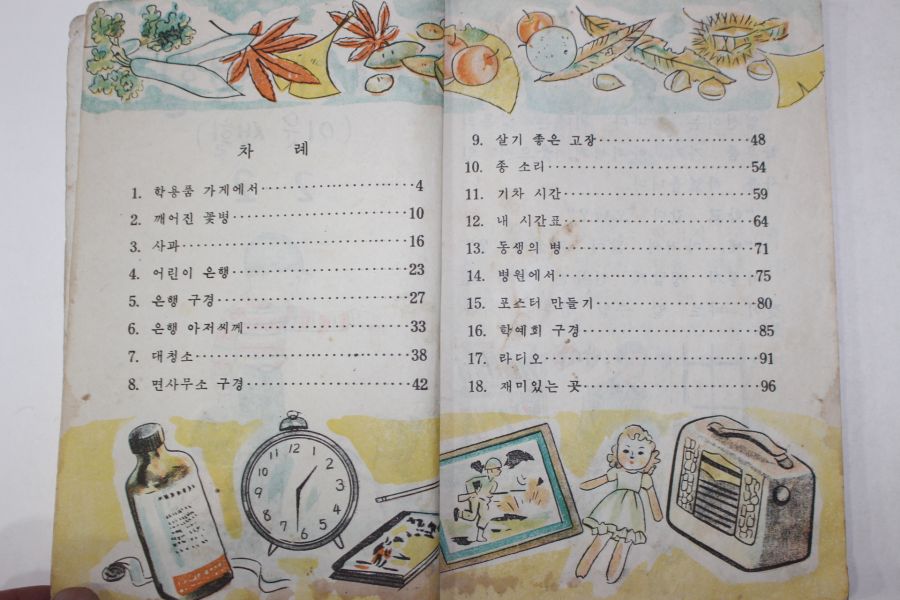 차 례
1. 학용품 가게에서 ························ 4
2. 깨어진 꽃병 ························ 10
3. 사과 ························ 16
4. 어린이 은행 ························ 23
5. 은행 구경 ························ 27
6. 은행 아저씨께 ························ 33
7. 대청소 ························ 38
8. 면사무소 구경 ························ 42
9. 살기 좋은 고장 ························ 48
10. 종 소리 ························ 54
11. 기차 시간 ························ 59
12. 내 시간표 ························ 64
13. 동생의 병 ························ 71
14. 병원에서 ························ 75
15. 포스터 만들기 ························ 80
16. 학예회 구경 ························ 85
17. 라디오 ························ 91
18. 재미있는 곳 ························ 96
12
1
2
3
4
5
6
7
8
9
10
11